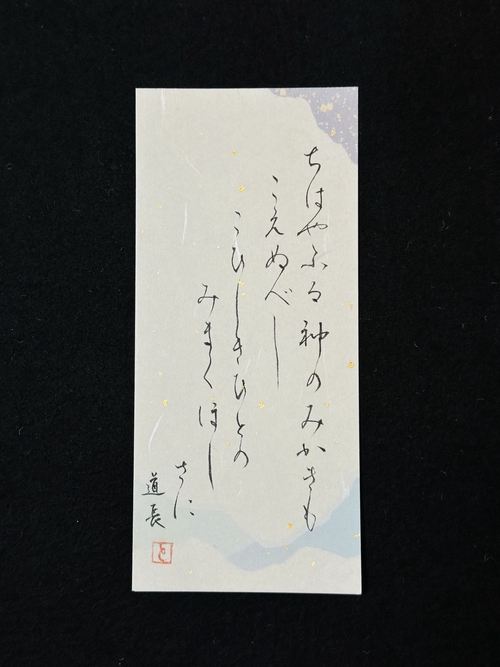 ちはやふる神のみかきも
こえぬべし
こひしきひとの
みまくほし
さに
道長